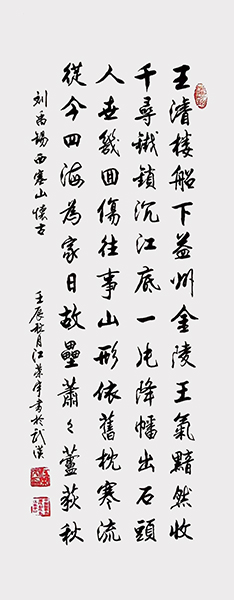 王濬楼船下益州金陵王氣黯然收
千尋鐵鎖沉江底一片降幡出石頭
人世幾回傷往事山形依舊枕寒流
從今四海為家日故壘蕭々蘆荻秋
刘禹锡西塞山懷古
壬辰秋月江書於武漢